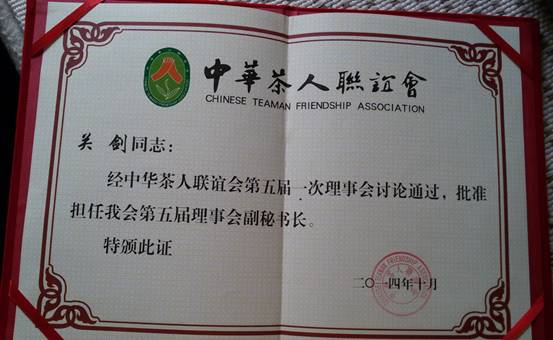 中華茶人聯誼會
CHINESE TEAMAN FRIENDSHIP ASSOCIATION
关 剑同志：
经中华茶人联谊会第五届一次理事会讨论通过，批准
担任我会第五届理事会副秘书长。
特颁此证
二〇一四年十月